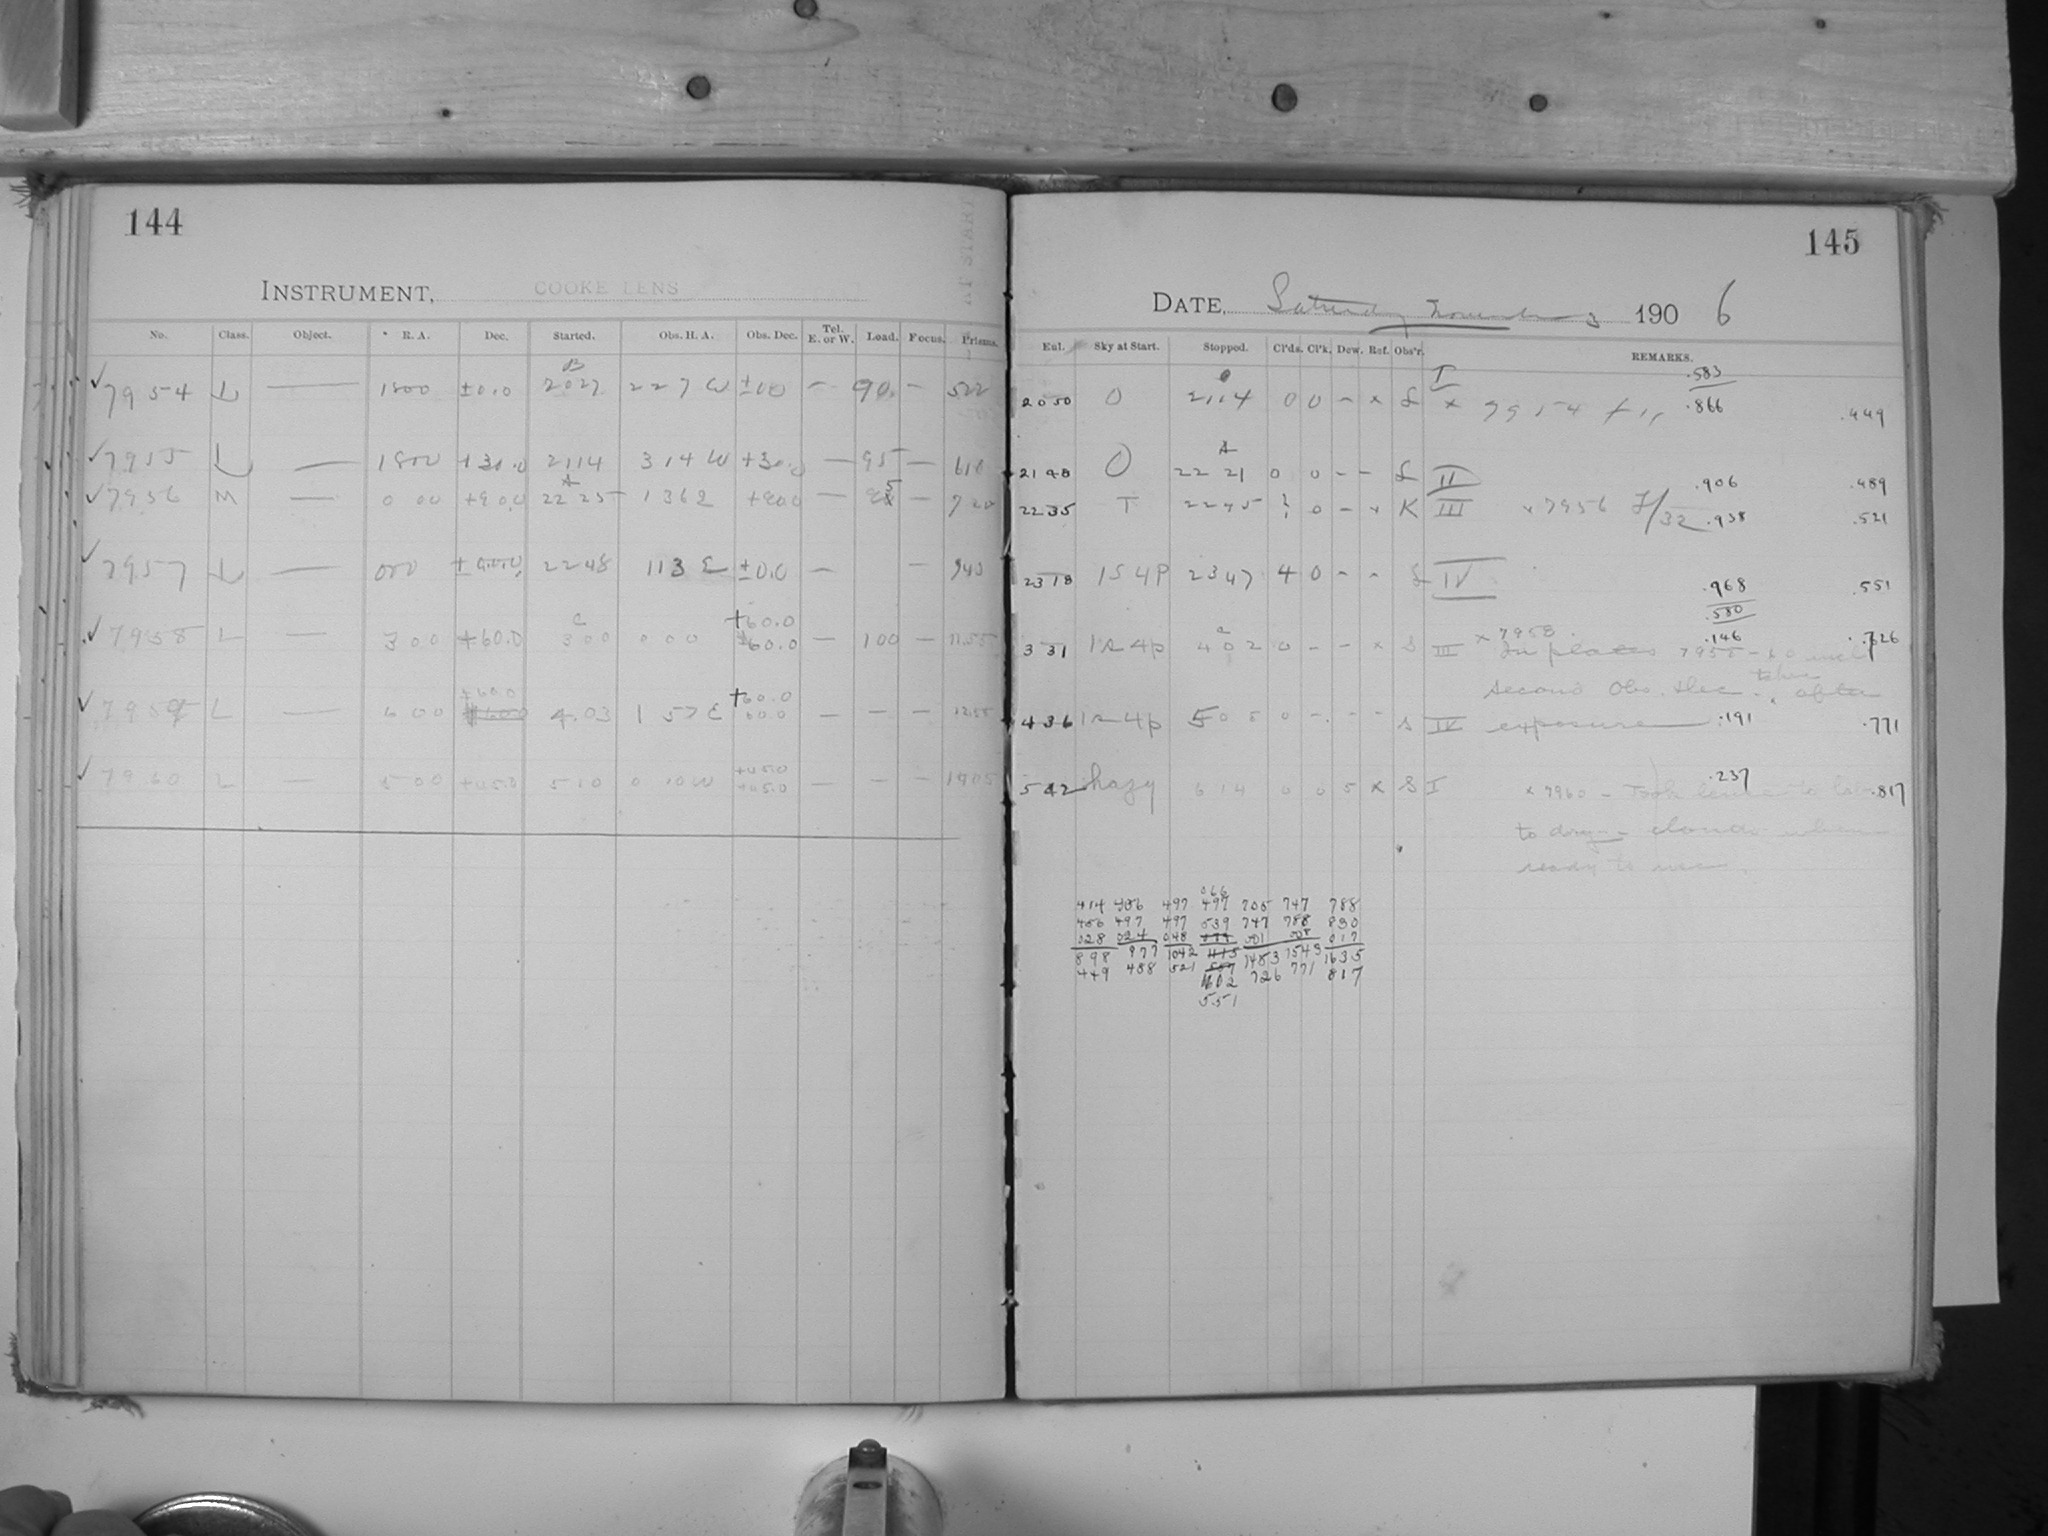 144
INSTRUMENT, COOKE LENS
No. Class. Object. R. A. Dec. Started. Obs. H. A. Obs. Dec. Tel. E. or W. Load. Focus. Prisms.
B
✓ 7954 L — 1800 ±0.0 2027 227 W ±00 — 90 — 522
✓ 7955 L — 1800 +30.0 2114 314 W +30.0 — 95 — 618
A
✓ 7956 M — 0 00 +80.0 22 25 1 36 E +80.0 — 5 — 720
✓ 7957 L — 000 ±0.0 2248 113 E ±0.0 — — 943
c +60.0
✓ 7958 L — 3 00 +60.0 300 000 60.0 — 100 — 1155
+60.0 +60.0
✓ 7959 L — 6 00 4.03 1 57 E 60.0 — — — 1255
+45.0
✓ 7960 L — 5 00 +45.0 510 0 10 W +45.0 — — — 1405
145
DATE, Saturday November 3 1906
Eul. Sky at Start. Stopped. Cl'ds. Cl'k. Dew. Ref. Obs'r. REMARKS.
I .583
2050 O 2114 0 0 – × L × 7954 .866 .449
A
2148 O 22 21 0 0 – – L II .906 .489
2235 T 2245 0 – × K III × 7956 F/32 .938 .521
2318 1S4P 2347 4 0 – – L IV .968 .551
.580
c × 7958 .146
331 1s4p 402 0 – – × S III In plates 7958–60 incl .726
second Obs. Dec. taken after
436 1s4p 505 0 – – – S IV exposure .191 .771
.237
542 hazy 614 0 0 5 × S I × 7960 – Took lens to lab .817
to dry – clouds when
ready to use.
066
414 456 497 497 705 747 788
456 497 497 539 747 788 830
028 024 048 001 008 017
898 977 1042 1453 1543 1635
449 488 521 726 771 817
1102
551